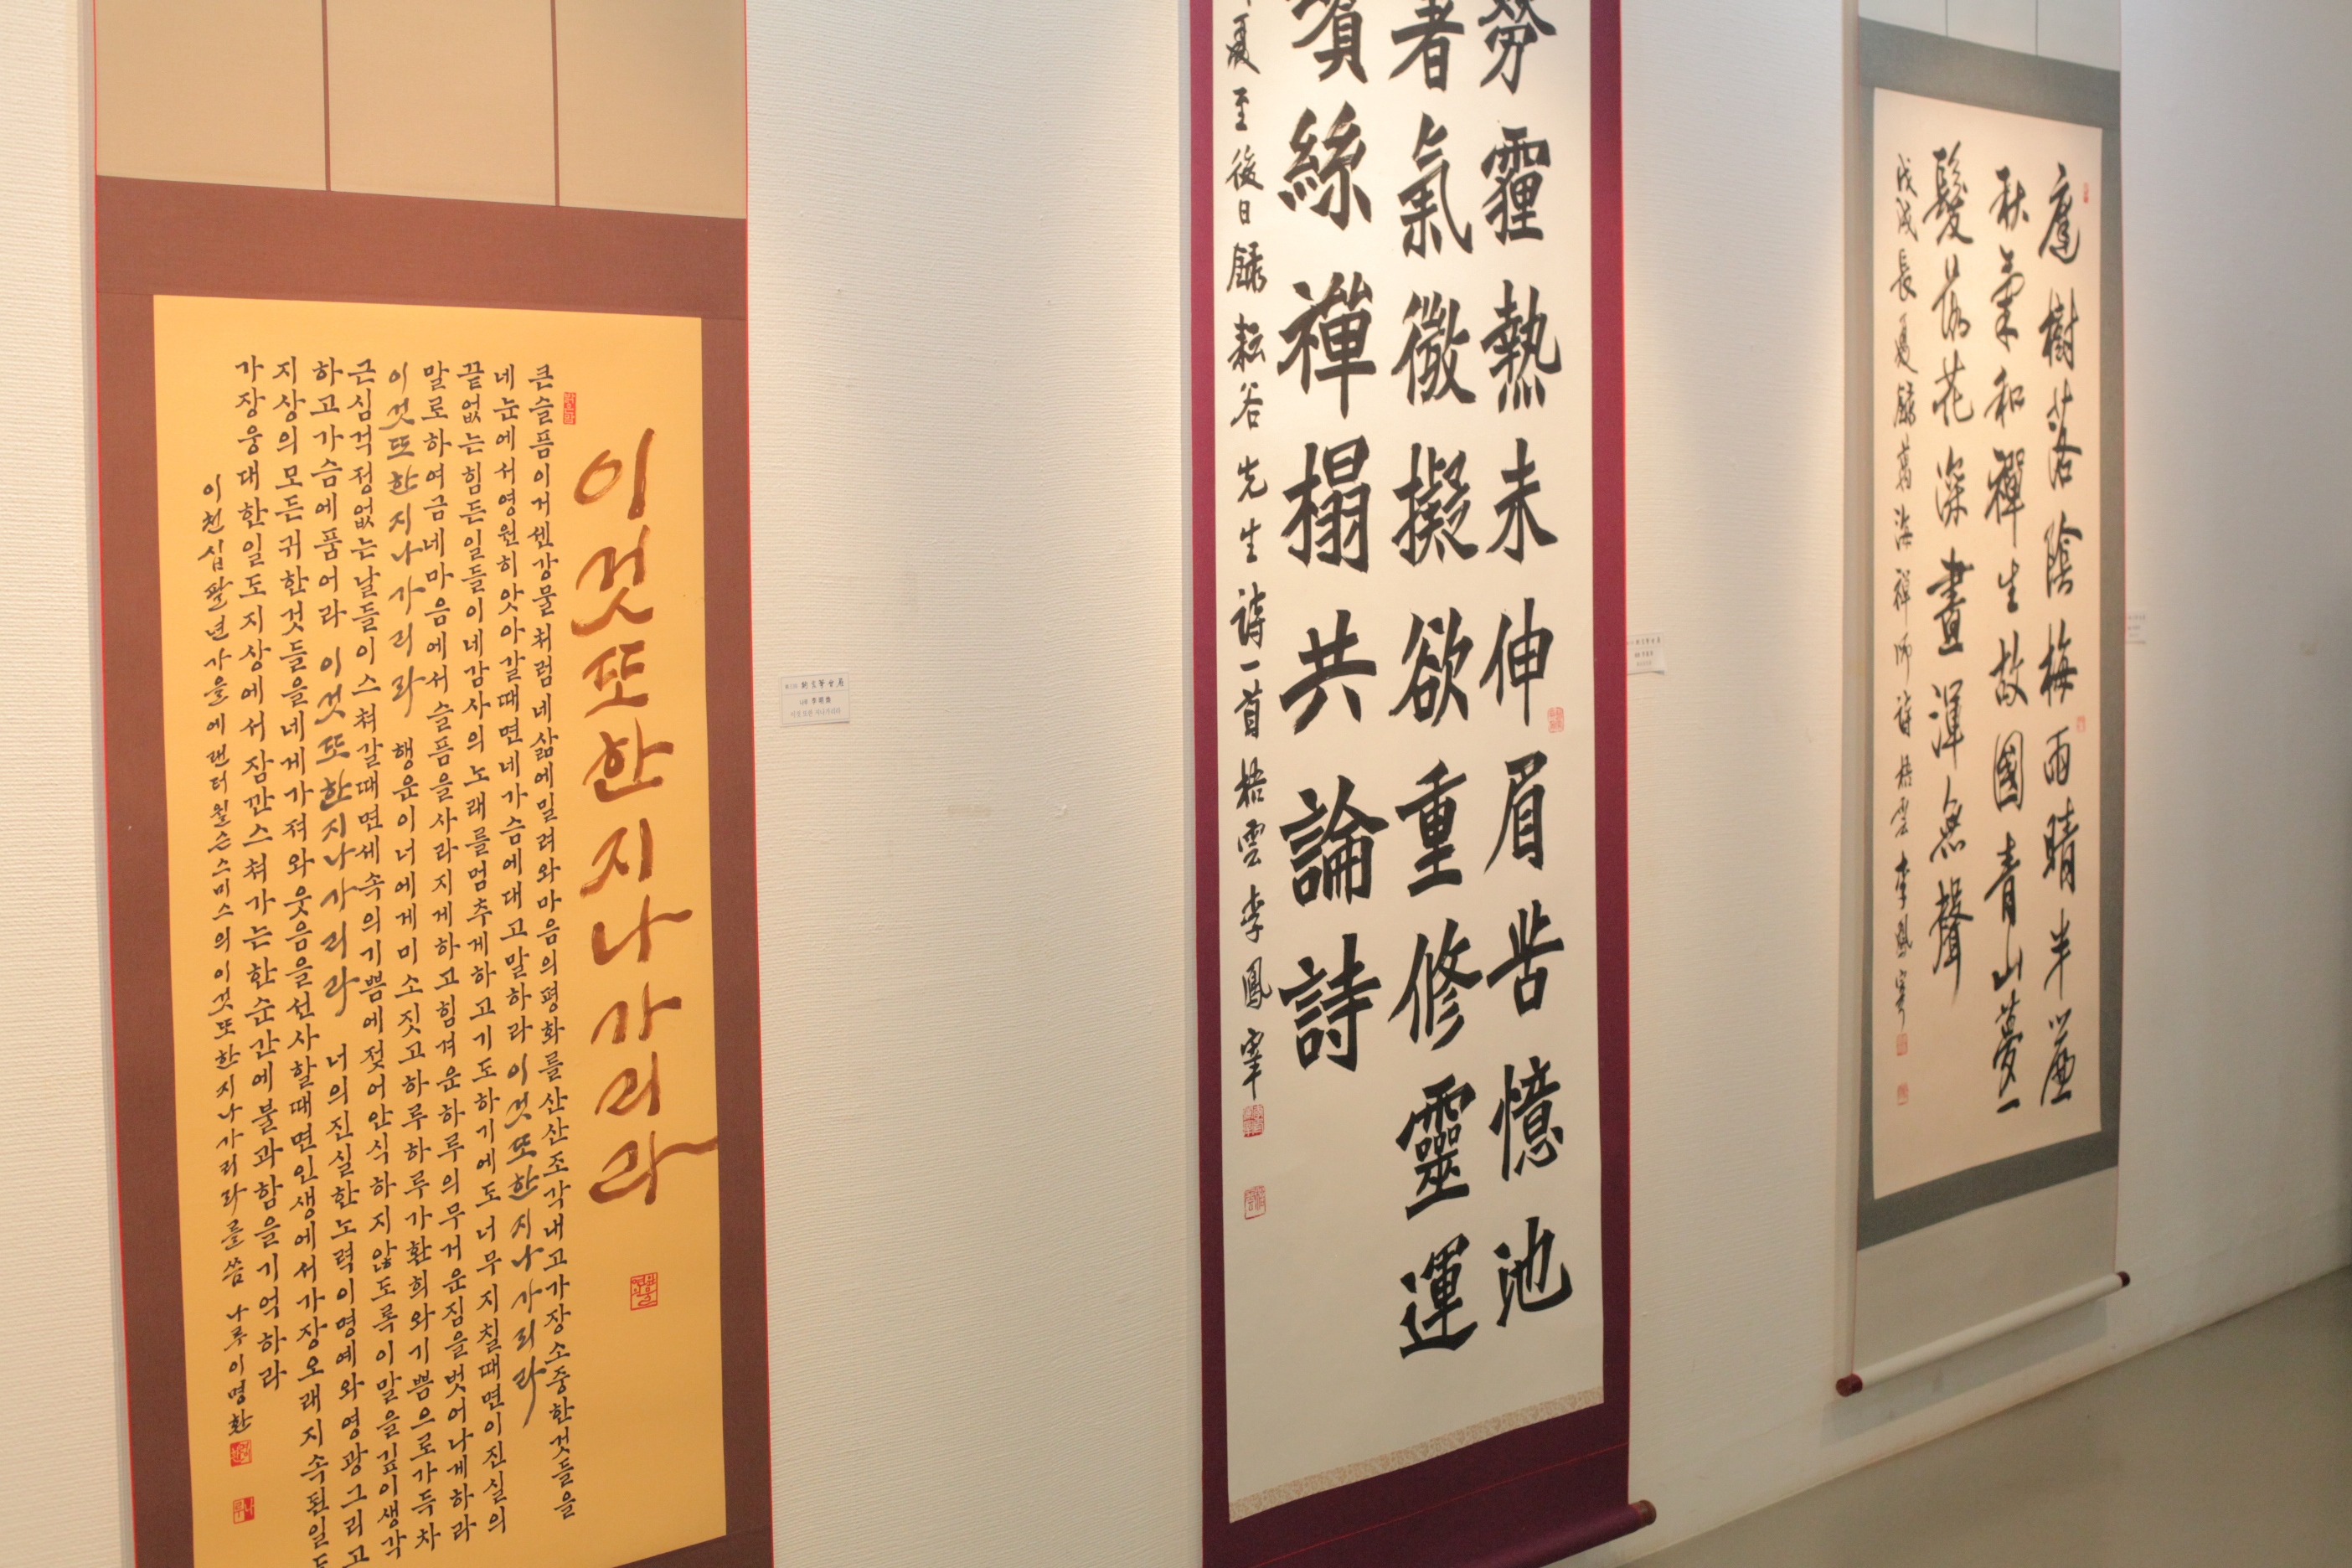 이것또한지나가리라
큰슬픔이거센강물처럼네삶에밀려와마음의평화를산산조각내고가장소중한것들을
네눈에서영원히앗아갈때면네가슴에대고말하라 이것또한지나가리라
끝없는힘든일들이네감사의노래를멈추게하고기도하기에도너무지칠때면이진실의
말로하여금네마음에서슬픔을사라지게하고힘겨운하루의무거운짐을벗어나게하라
이것또한지나가리라 행운이너에게미소짓고하루하루가환희와기쁨으로가득차
근심걱정없는날들이스쳐갈때면세속의기쁨에젖어안식하지않도록이말을깊이생각
하고가슴에품어라 이것또한지나가리라 너의진실한노력이명예와영광그리고
지상의모든귀한것들을네게가져와웃음을선사할때면인생에서가장오래지속된일도
가장웅대한일도지상에서잠깐스쳐가는한순간에불과함을기억하라
이천십팔년가을에랜터윌슨스미스의이것또한지나가리라를씀 나루이명환
霾熱未伸眉苦憶池
者氣微擬欲重修靈運
絲禪榻共論詩
夏至後日錄耘谷先生詩一首 梧雲李鳳宰
庭樹落陰梅雨晴半簾
秋氣和禪生故國青山夢一
髮落花深晝渾無聲
戊戌長夏錄 海禪師詩 梧雲李鳳宰